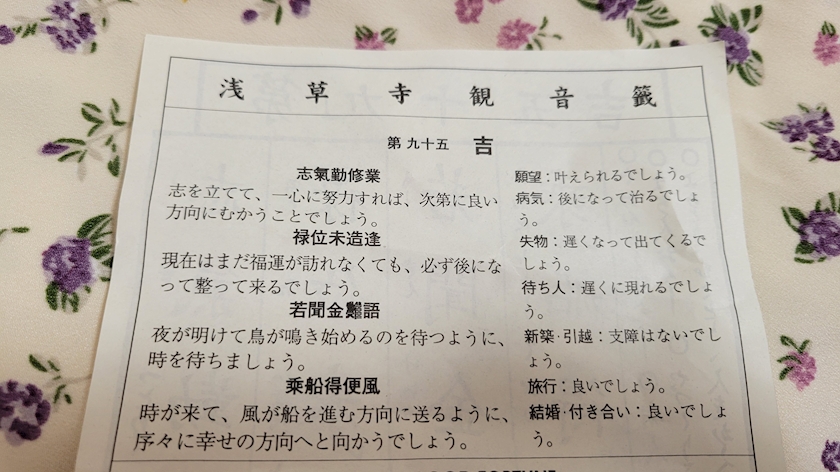 浅草寺観音籤
第九十五 吉
志氣勤修業
志を立てて、一心に努力すれば、次第に良い
方向にむかうことでしょう。
禄位未造逢
現在はまだ福運が訪れなくても、必ず後にな
って整って来るでしょう。
若聞金雞語
夜が明けて鳥が鳴き始めるのを待つように、
時を待ちましょう。
乗船得便風
時が来て、風が船を進む方向に送るように、
序々に幸せの方向へと向かうでしょう。
願望：叶えられるでしょう。
病気：後になって治るでしょ
う。
失物：遅くなって出てくるで
しょう。
待ち人：遅くに現れるでしょ
う。
新築・引越：支障はないでし
ょう。
旅行：良いでしょう。
結婚・付き合い：良いでしょ
う。